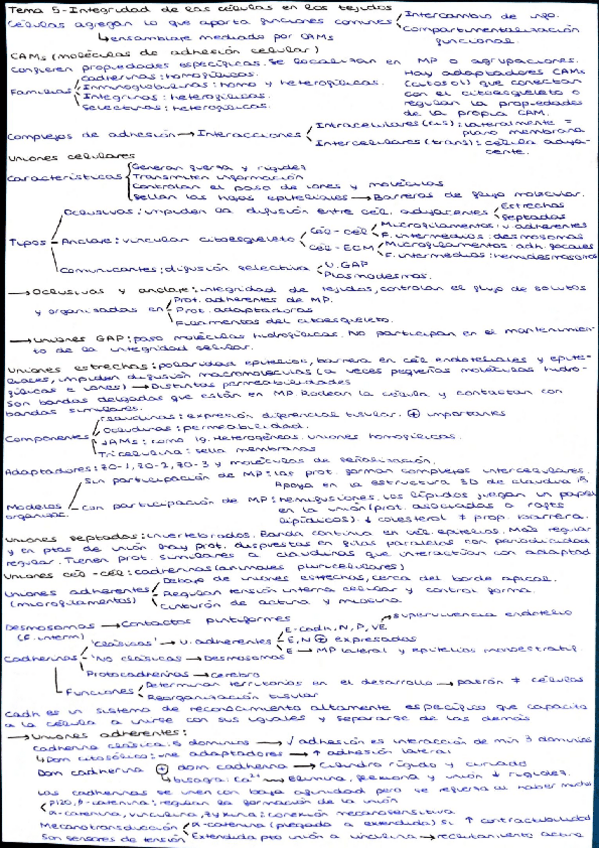 Tema 5 - Integridad de las células en los tejidos
Células agregan lo que aporta funciones comunes Intercambio de info.
Compartimentalización funcional
ensamblaje mediado por CAMs
CAMs (moléculas de adhesión celular)
Confieren propiedades específicas. Se localizan en MP o agrupaciones.
Familias
Cadherinas: homofílicas.
Inmunoglobulinas: homo y heterofílicas.
Integrinas: heterofílicas.
Selectinas: heterofílicas.
Hay adaptadores CAMs (citosol) que conectan con el citoesqueleto o regulan la propiedades de la propia CAM.
Complejos de adhesión → Interacciones
Intracelulares (cis): lateralmente = plano membrana
Intercelulares (trans): célula adyacente.
Uniones celulares
Características
Generan fuerza y rigidez
Transmiten información
Controlan el paso de iones y moléculas
Sellan las hojas epiteliales → Barreras de flujo molecular.
Tipos
Oclusivas: impiden la difusión entre cél. adyacentes Estrechas
Septadas
Anclaje: vinculan citoesqueleto
cél-cél Microfilamentos: u. adherentes
F. intermedios: desmosomas
cél-ECM Microfilamentos: adh. focales
F. intermedios: hemidesmosomas
Comunicantes: difusión selectiva U. GAP
Plasmodesmos.
→ Oclusivas y anclaje: integridad de tejidos, controlan el flujo de solutos
y organizadas en
Prot. adherentes de MP.
Prot. adaptadoras
Filamentos del citoesqueleto.
→ Uniones GAP: paso moléculas hidrofílicas. No participan en el mantenimiento de la integridad celular.
Uniones estrechas: polaridad epitelios, barrera en cél endoteliales y epiteliales, impiden difusión macromoléculas (a veces pequeñas moléculas hidrofílicas e iones) → Distintas permeabilidades
Son bandas delgadas que están en MP. Rodean la célula y contactan con bandas similares.
Componentes
Claudinas: expresión diferencial tisular. ⊕ importantes
Ocludinas: permeabilidad.
JAMs: como Ig. Heterogéneas. Uniones homofílicas.
Tricelulina: sella membranas
Adaptadores: ZO-1, ZO-2, ZO-3 y moléculas de señalización.
Modelos organizac.
Sin participación de MP: las prot. forman complejos intercelulares.
Apoya en la estructura 3D de claudina
Con participación de MP: hemifusiones. Los lípidos juegan un papel
en la unión (prot. asociadas a rafts lipídicos). ↓ colesterol ≠ prop. barrera.
Uniones septadas: invertebrados. Banda continua en cél. epitelios. Más regular
y en ptos de unión hay prot. dispuestas en filas paralelas con periodicidad
regular. Tienen prot. similares a claudinas que interactúan con adaptad
Uniones cél-cél: cadherinas (animales pluricelulares)
Uniones adherentes (microfilamentos)
Debajo de uniones estrechas, cerca del borde apical.
Regulan tensión interna celular y control forma.
Cinturón de actina y miosina.
Desmosomas → Contactos puntiformes
(F. interm)
Cadherinas
'Clásicas' → U. adherentes
E-cadh, N, P, VE → supervivencia endotelio
E, N ⊕ expresadas
E → MP lateral y epitelios monoestratif
'No clásicas' → Desmosomas
Protocadherinas → Cerebro
Funciones
Determinan territorios en el desarrollo → patrón ≠ células
Reorganización tisular
Cadh es un sistema de reconocimiento altamente específico que capacita
a la célula a unirse con sus iguales y separarse de las demás
→ Uniones adherentes:
Cadherina clásica: 5 dominios → √ adhesión es interacción de min 3 dominios
↳ Dom citosólico: une adaptadores → ↑ adhesión lateral
Dom cadherina ⊕ dom cadherina → Cilindro rígido y curvado
↳ bisagra: Ca²⁺ → Elimina, flexiona y unión ↓ rigidez.
Las cadherinas se unen con baja afinidad pero se refuerza al haber muchas
p120, β-catenina: regulan la formación de la unión
α-catenina, vinculina, zyxina: conexión mecanosensitiva
Mecanotransducción α-catenina (plegada a extendida) si ↑ contractibilidad
Son sensores de tensión Extendida pto unión a vinculina → reclutamiento actina